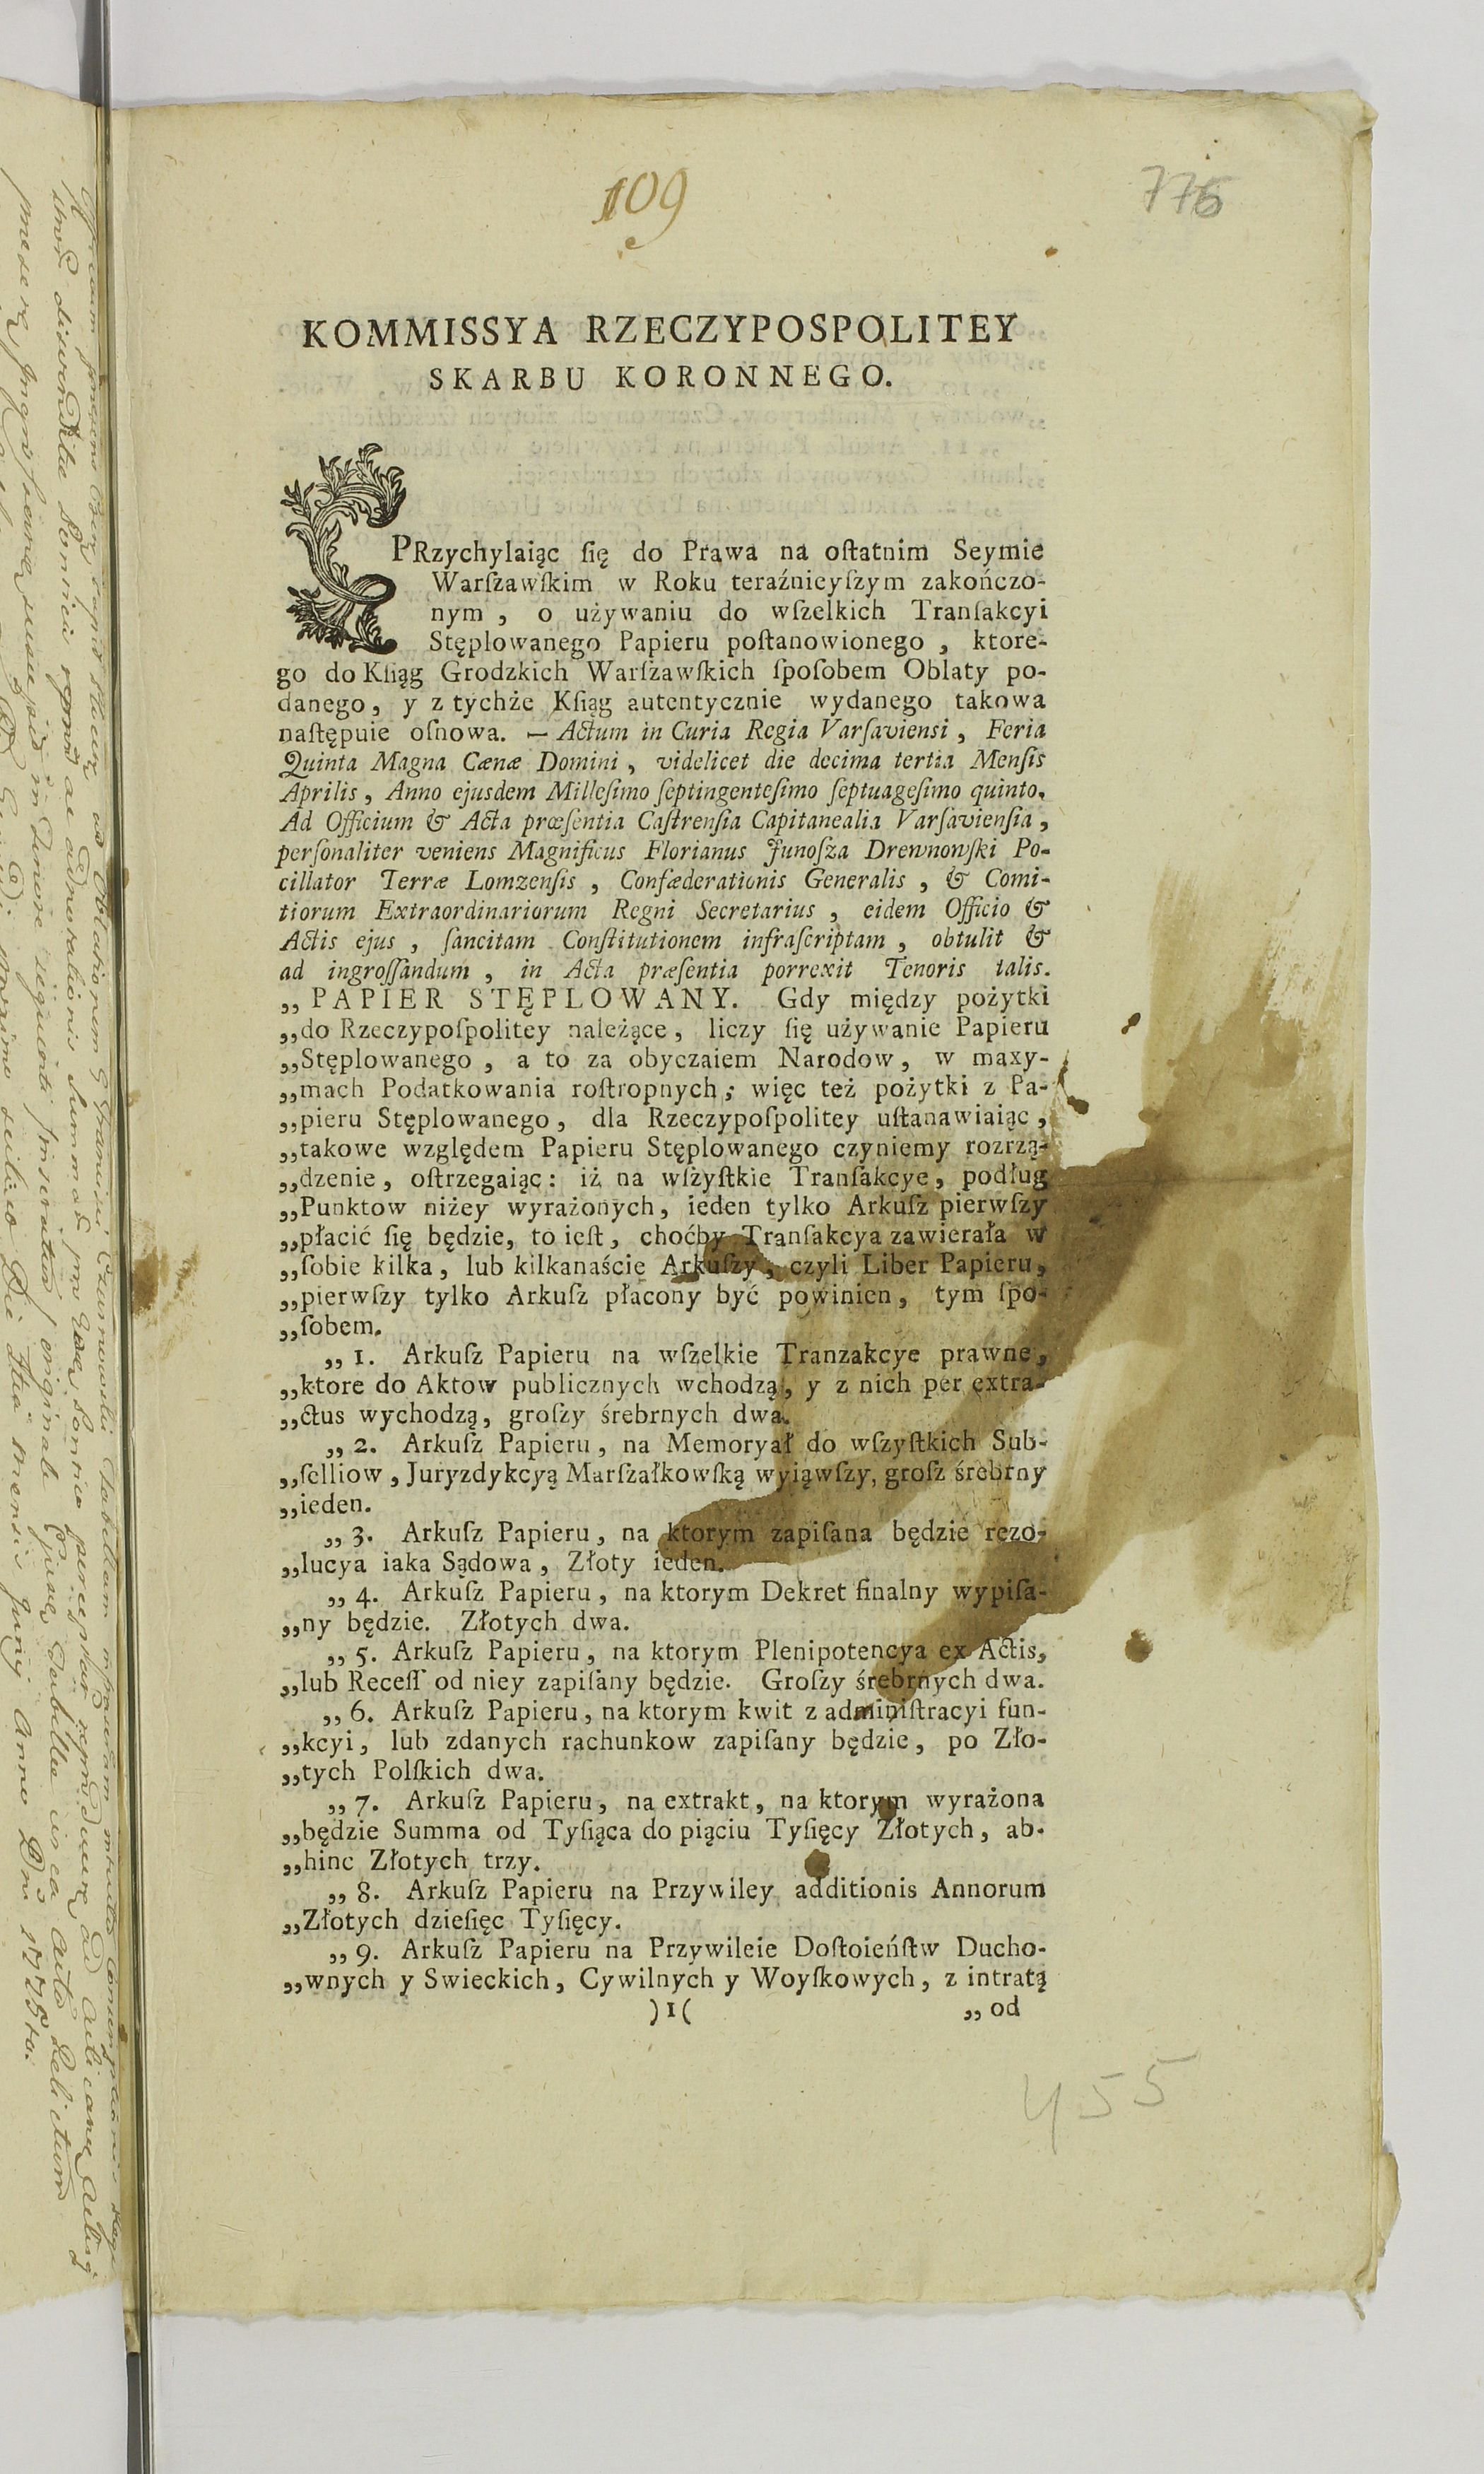 109
776
KOMMISSYA RZECZYPOSPOLITEY
SKARBU KORONNEGO.
PRzychylaiąc ſię do Prawa na oſtatnim Seymie
Warſzawſkim w Roku teraźnieyſzym zakończo-
nym, o używaniu do wſzelkich Tranſakcyi
Stęplowanego Papieru poſtanowionego, ktore-
go do Kſiąg Grodzkich Warſzawſkich ſpoſobem Oblaty po-
danego, y z tychże Kſiąg autentycznie wydanego takowa
naſtępuie oſnowa. — Actum in Curia Regia Varſavienſi, Feria
Quinta Magna Cænæ Domini, videlicet die decima tertia Menſis
Aprilis, Anno ejusdem Milleſimo ſeptingenteſimo ſeptuageſimo quinto.
Ad Officium & Acta præſentia Caſtrenſia Capitanealia Varſavienſia,
perſonaliter veniens Magnificus Florianus Junoſza Drewnowſki Po-
cillator Terræ Lomzenſis, Confæderationis Generalis, & Comi-
tiorum Extraordinariorum Regni Secretarius, eidem Officio &
Actis ejus, ſancitam Conſtitutionem infraſcriptam, obtulit &
ad ingroſſandum, in Acta præſentia porrexit Tenoris talis.
„PAPIER STĘPLOWANY. Gdy między pożytki
„do Rzeczypoſpolitey należące, liczy ſię używanie Papieru
„Stęplowanego, a to za obyczaiem Narodow, w maxy-
„mach Podatkowania roſtropnych; więc też pożytki z Pa-
„pieru Stęplowanego, dla Rzeczypoſpolitey uſtanawiaiąc,
„takowe względem Papieru Stęplowanego czyniemy rozrzą-
„dzenie, oſtrzegaiąc: iż na wſzyſtkie Tranſakcye, podług
„Punktow niżey wyrażonych, ieden tylko Arkuſz pierwſzy
„płacić ſię będzie, to ieſt, choćby Tranſakcya zawierała w
„ſobie kilka, lub kilkanaście Arkuſzy, czyli Liber Papieru,
„pierwſzy tylko Arkuſz płacony być powinien, tym ſpo-
„ſobem.
„1. Arkuſz Papieru na wſzelkie Tranzakcye prawne,
„ktore do Aktow publicznych wchodzą, y z nich per extra-
„ctus wychodzą, groſzy śrebrnych dwa.
„2. Arkuſz Papieru, na Memoryał do wſzyſtkich Sub-
„ſelliow, Juryzdykcyą Marſzałkowſką wyiąwſzy, groſz śrebrny
„ieden.
„3. Arkuſz Papieru, na ktorym zapiſana będzie rezo-
„lucya iaka Sądowa, Złoty ieden.
„4. Arkuſz Papieru, na ktorym Dekret finalny wypiſa-
„ny będzie. Złotych dwa.
„5. Arkuſz Papieru, na ktorym Plenipotencya ex Actis,
„lub Receſſ od niey zapiſany będzie. Groſzy śrebrnych dwa.
„6. Arkuſz Papieru, na ktorym kwit z adminiſtracyi fun-
„kcyi, lub zdanych rachunkow zapiſany będzie, po Zło-
„tych Polſkich dwa.
„7. Arkuſz Papieru, na extrakt, na ktorym wyrażona
„będzie Summa od Tyſiąca do piąciu Tyſięcy Złotych, ab-
„hinc Złotych trzy.
„8. Arkuſz Papieru na Przywiley additionis Annorum
„Złotych dzieſięc Tyſięcy.
„9. Arkuſz Papieru na Przywileie Doſtoieńſtw Ducho-
„wnych y Swieckich, Cywilnych y Woyſkowych, z intratą
)1( „od
455